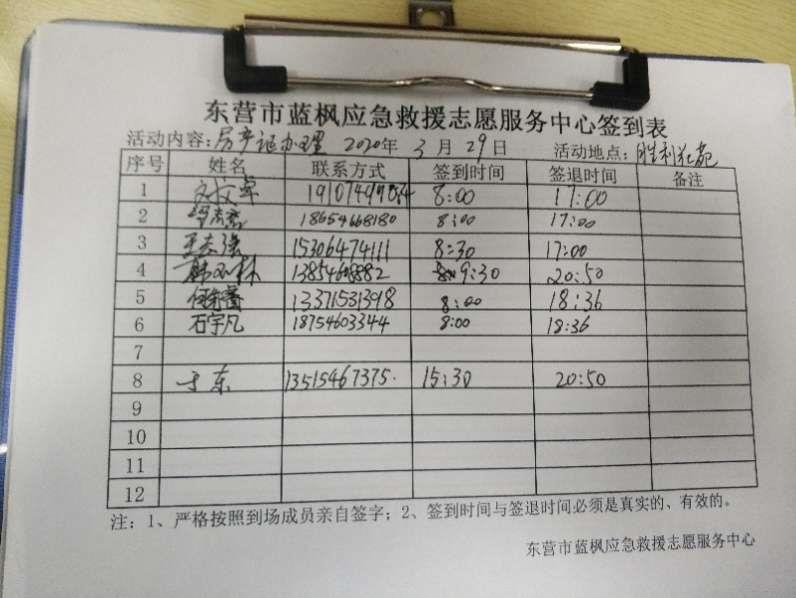 东营市蓝枫应急救援志愿服务中心签到表
活动内容:房产证办理 2020年 3月29日 活动地点:胜利花苑
序号 姓名 联系方式 签到时间 签退时间 备注
1 8:00 17:00
2 18654668180 8:00 17:00
3 王志强 15306474111 8:30 17:00
4 9:30 20:50
5 13371531398 8:00 18:36
6 石宇凡 18754603344 8:00 18:36
7
8 于东 13515467375. 15:30 20:50
9
10
11
12
注:1、严格按照到场成员亲自签字;2、签到时间与签退时间必须是真实的、有效的。
东营市蓝枫应急救援志愿服务中心